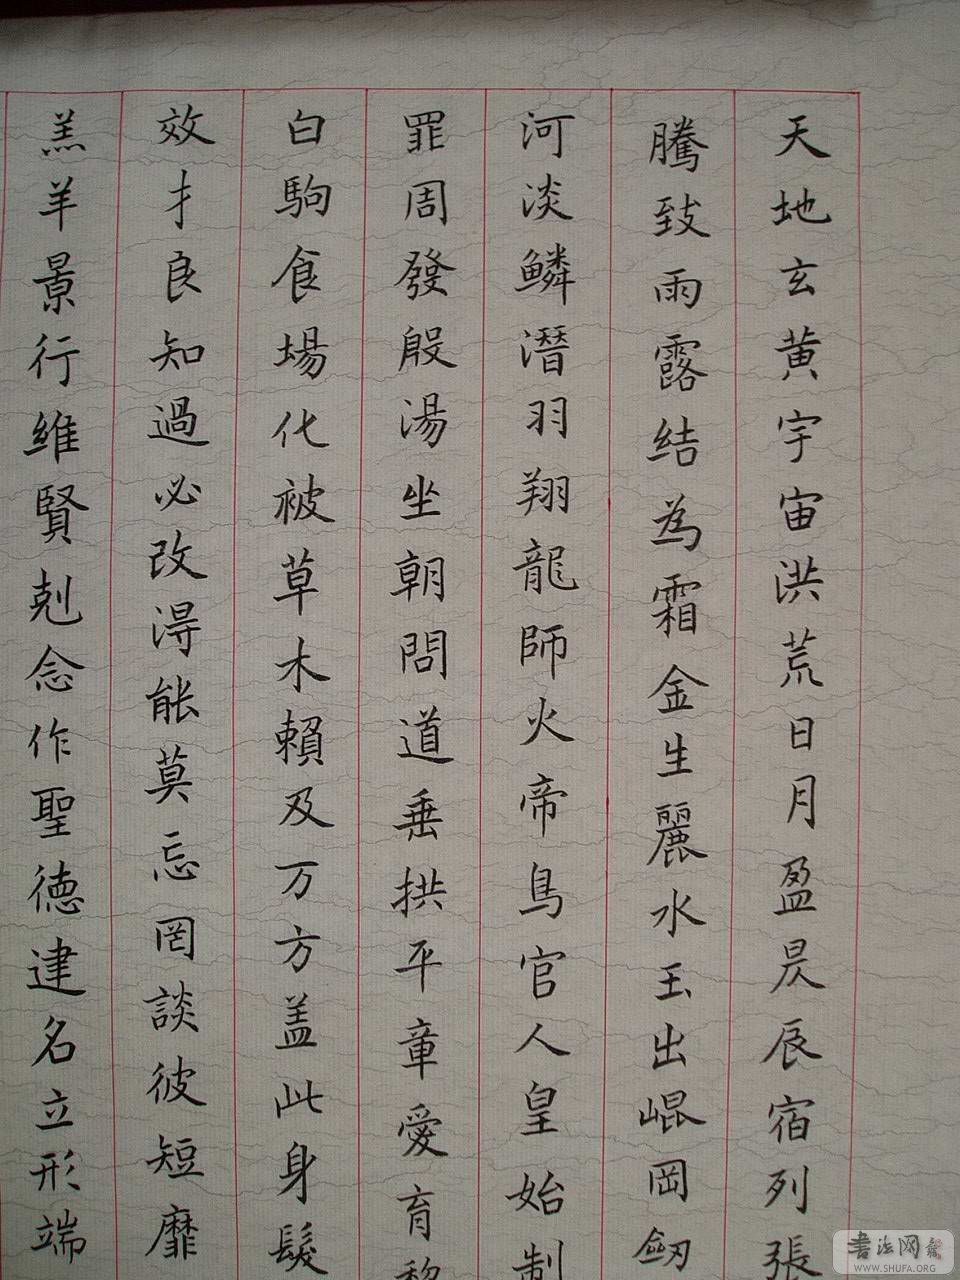 天地玄黄宇宙洪荒日月盈昃辰宿列張
騰致雨露結為霜金生麗水玉出崐岡劒
河淡鱗潛羽翔龍師火帝鳥官人皇始制
罪周發殷湯坐朝問道垂拱平章愛育黎
白駒食場化被草木賴及万方盖此身髮
效才良知過必改得能莫忘罔談彼短靡
羔羊景行維賢剋念作聖德建名立形端
書法网
WWW.SHUFA.ORG